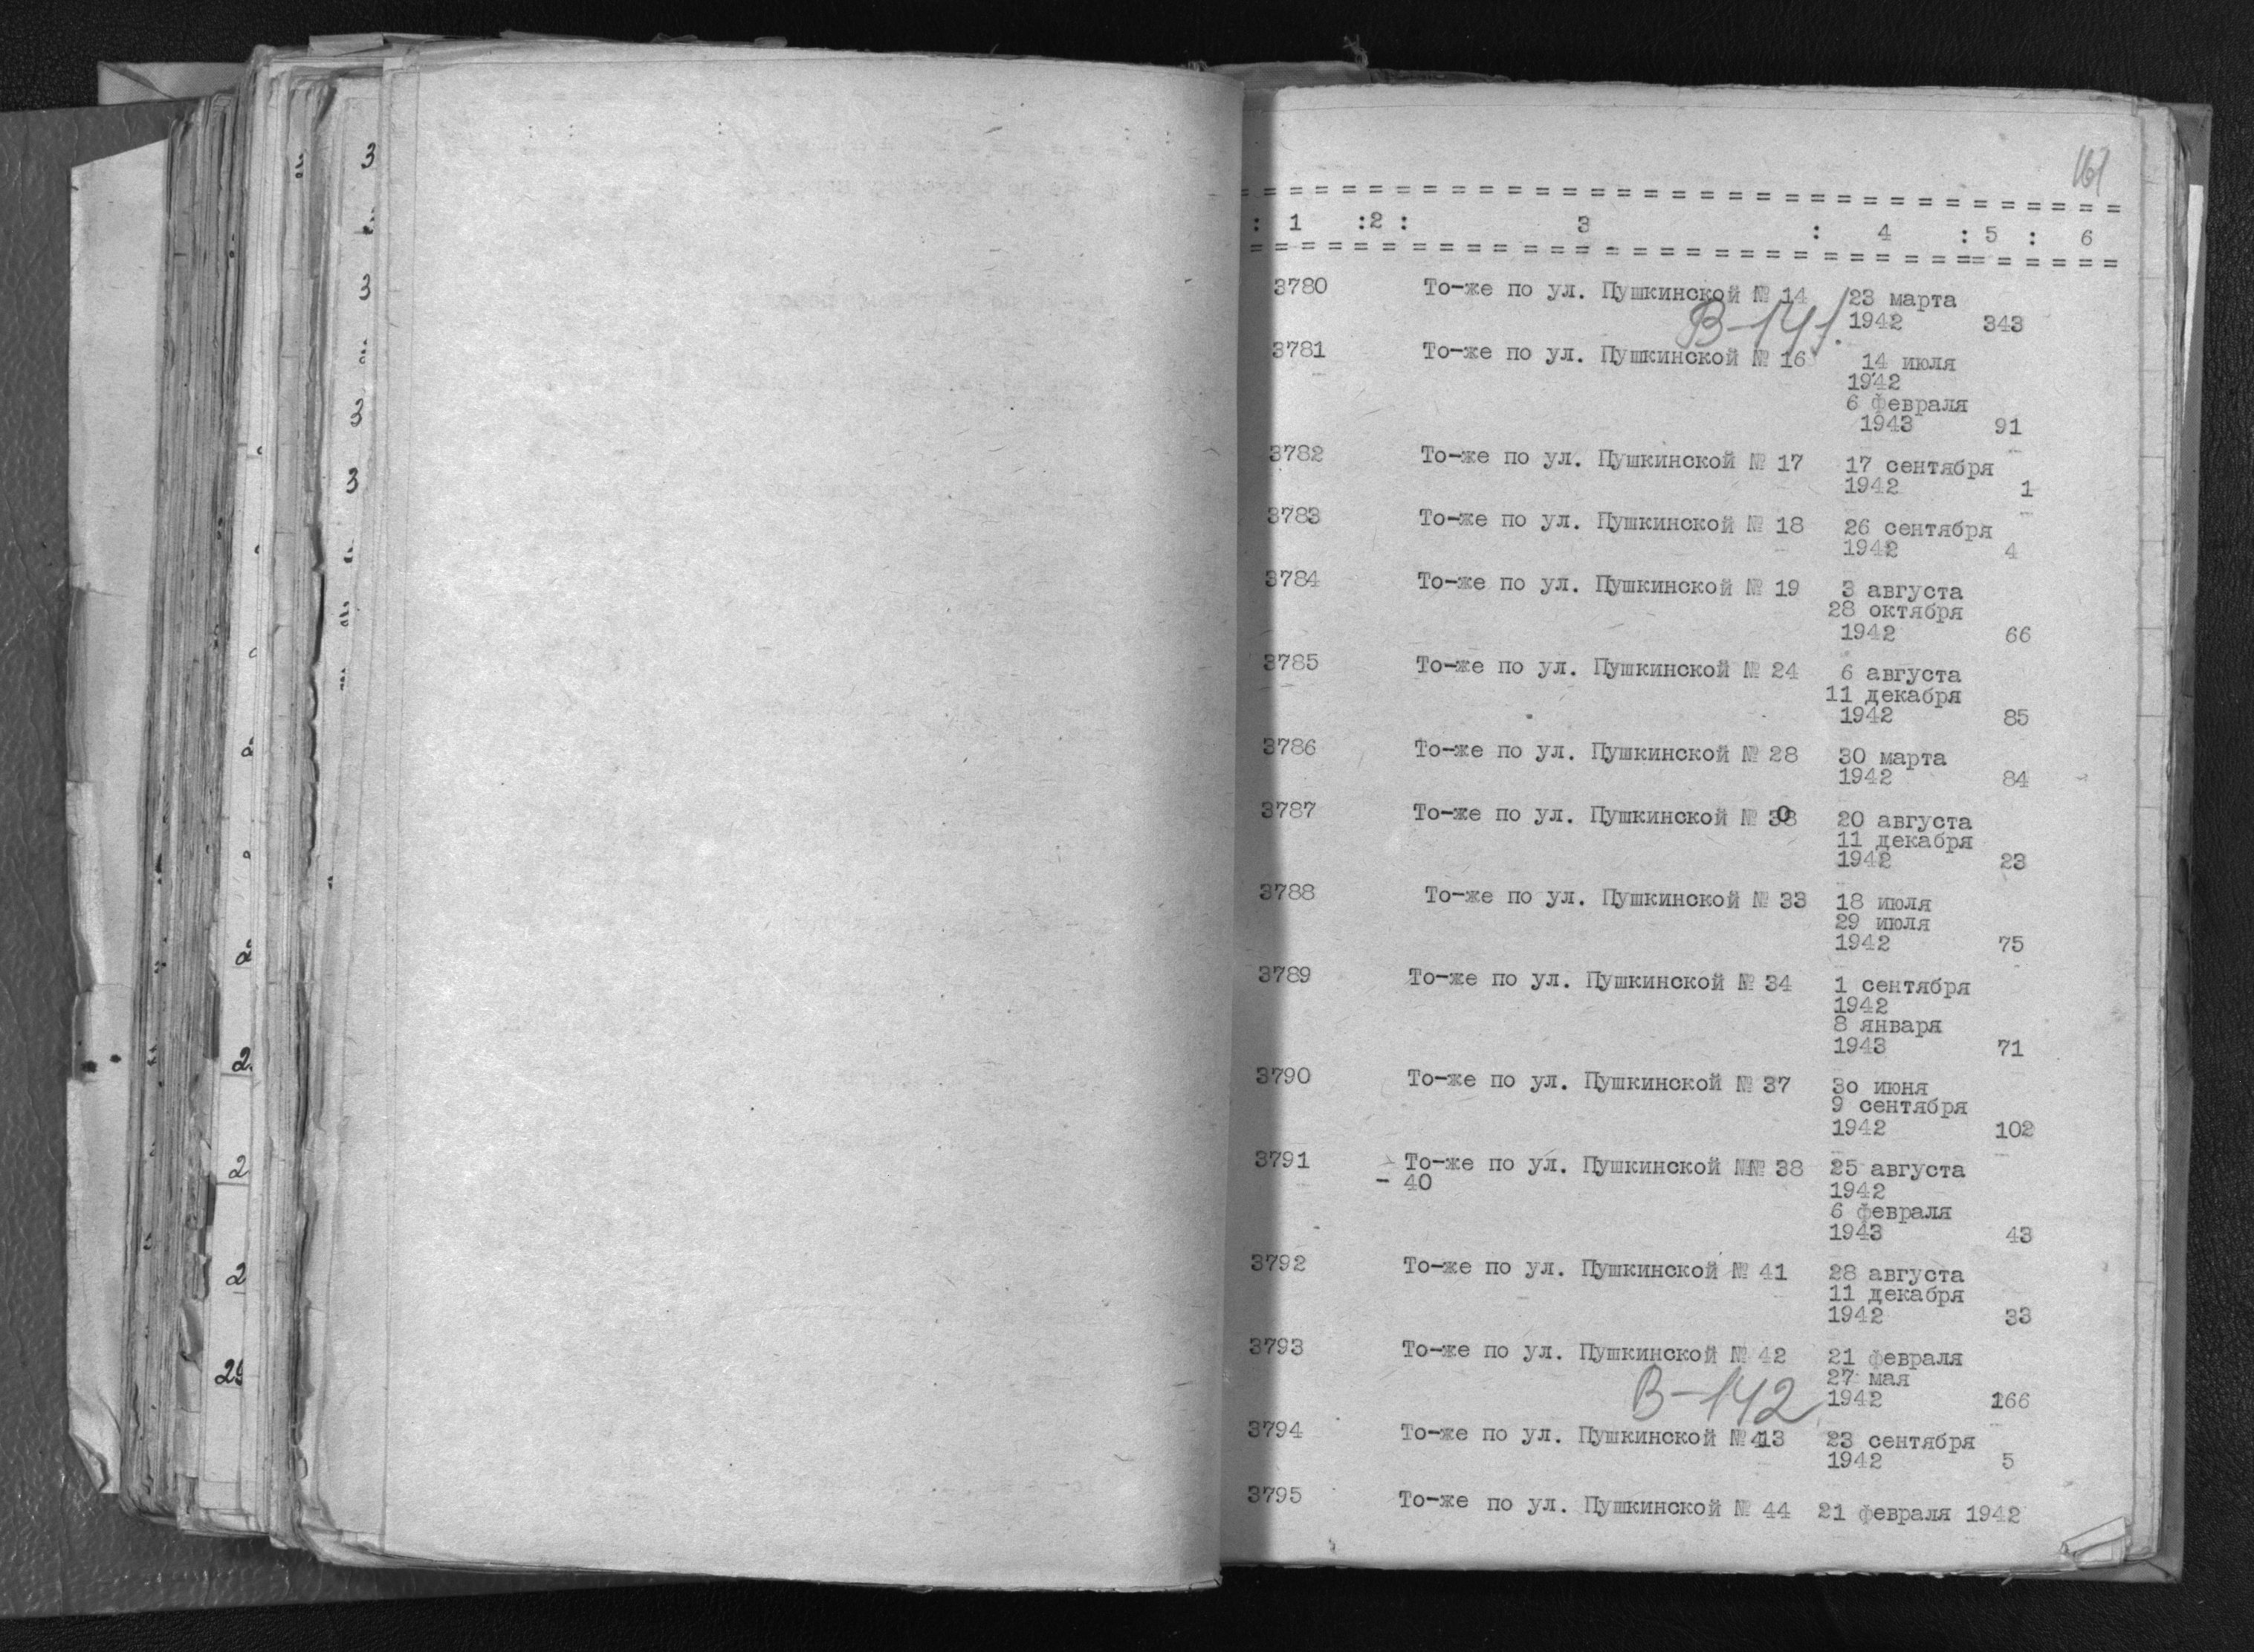 161
: 1 :2 : 3 : 4 : 5 : 6
3780 То-же по ул. Пушкинской № 14 23 марта
1942 343
В-141.
3781 То-же по ул. Пушкинской № 16 14 июля
1942
6 февраля
1943 91
3782 То-же по ул. Пушкинской № 17 17 сентября
1942 1
3783 То-же по ул. Пушкинской № 18 26 сентября
1942 4
3784 То-же по ул. Пушкинской № 19 3 августа
28 октября
1942 66
3785 То-же по ул. Пушкинской № 24 6 августа
11 декабря
1942 85
3786 То-же по ул. Пушкинской № 28 30 марта
1942 84
3787 То-же по ул. Пушкинской № 30 20 августа
11 декабря
1942 23
3788 То-же по ул. Пушкинской № 33 18 июля
29 июля
1942 75
3789 То-же по ул. Пушкинской № 34 1 сентября
1942
8 января
1943 71
3790 То-же по ул. Пушкинской № 37 3о июня
9 сентября
1942 102
3791 То-же по ул. Пушкинской №№ 38 25 августа
- 40 1942
6 февраля
1943 43
3792 То-же по ул. Пушкинской № 41 28 августа
11 декабря
1942 33
3793 То-же по ул. Пушкинской № 42 21 февраля
27 мая
В-142 1942 166
3794 То-же по ул. Пушкинской № 43 23 сентября
1942 5
3795 То-же по ул. Пушкинской № 44 21 февраля 1942